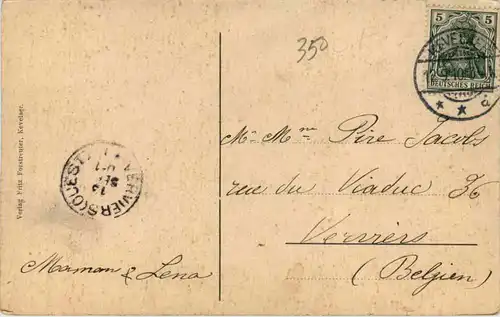 350
5 5
DEUTSCHES REICH
Mr Mme Pire Jacobs
rue du Viaduc 36
Verviers
(Belgien)
Maman & Lena
VERVIERS (OUEST)
Verlag Fritz Forstreuter, Kevelaer.